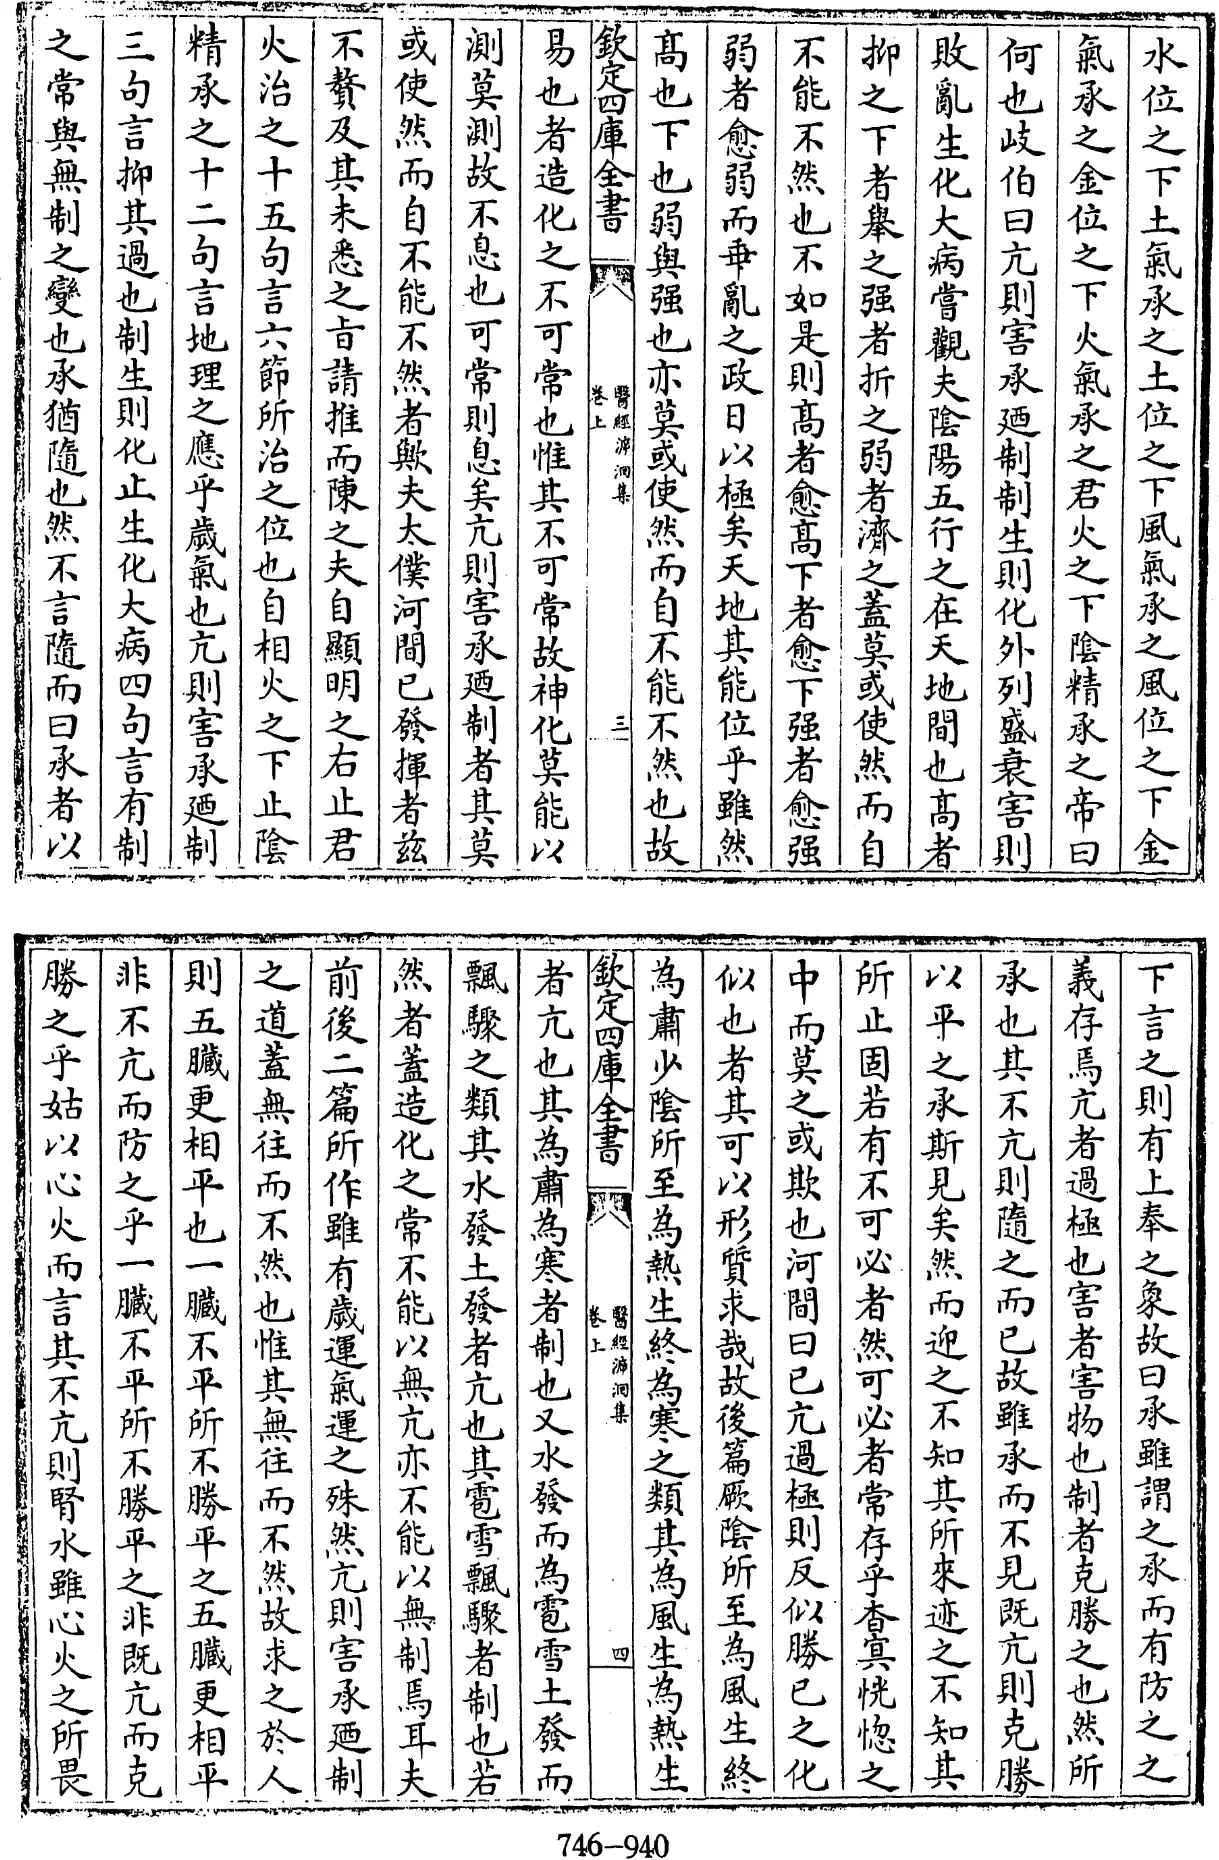 水位之下土氣承之土位之下風氣承之風位之下金
氣承之金位之下火氣承之君火之下陰精承之帝曰
何也岐伯曰亢則害承廼制制生則化外列盛衰害則
敗亂生化大病嘗觀夫陰陽五行之在天地間也髙者
抑之下者舉之强者折之弱者濟之蓋莫或使然而自
不能不然也不如是則髙者愈髙下者愈下强者愈强
弱者愈弱而乖亂之政日以極矣天地其能位乎雖然
髙也下也弱與强也亦莫或使然而自不能不然也故
欽定四庫全書
醫經溯洄集
卷上
三
易也者造化之不可常也惟其不可常故神化莫能以
測莫測故不息也可常則息矣亢則害承廼制者其莫
或使然而自不能不然者歟夫太僕河間已發揮者兹
不贅及其未悉之旨請推而陳之夫自顯明之右止君
火治之十五句言六節所治之位也自相火之下止陰
精承之十二句言地理之應乎歲氣也亢則害承廼制
三句言抑其過也制生則化止生化大病四句言有制
之常與無制之變也承猶隨也然不言隨而曰承者以
下言之則有上奉之象故曰承雖謂之承而有防之之
義存焉亢者過極也害者害物也制者克勝之也然所
承也其不亢則隨之而已故雖承而不見既亢則克勝
以平之承斯見矣然而迎之不知其所來迹之不知其
所止固若有不可必者然可必者常存乎杳冥恍惚之
中而莫之或欺也河間曰已亢過極則反似勝已之化
似也者其可以形質求哉故後篇厥陰所至為風生終
為肅少陰所至為熱生終為寒之類其為風生為熱生
欽定四庫全書
醫經溯洄集
卷上
四
者亢也其為肅為寒者制也又水發而為雹雪土發而
飄驟之類其水發土發者亢也其雹雪飄驟者制也若
然者蓋造化之常不能以無亢亦不能以無制焉耳夫
前後二篇所作雖有歲運氣運之殊然亢則害承廼制
之道蓋無往而不然也惟其無往而不然故求之於人
則五臟更相平也一臟不平所不勝平之五臟更相平
非不亢而防之乎一臟不平所不勝平之非既亢而克
勝之乎姑以心火而言其不亢則腎水雖心火之所畏
746-940